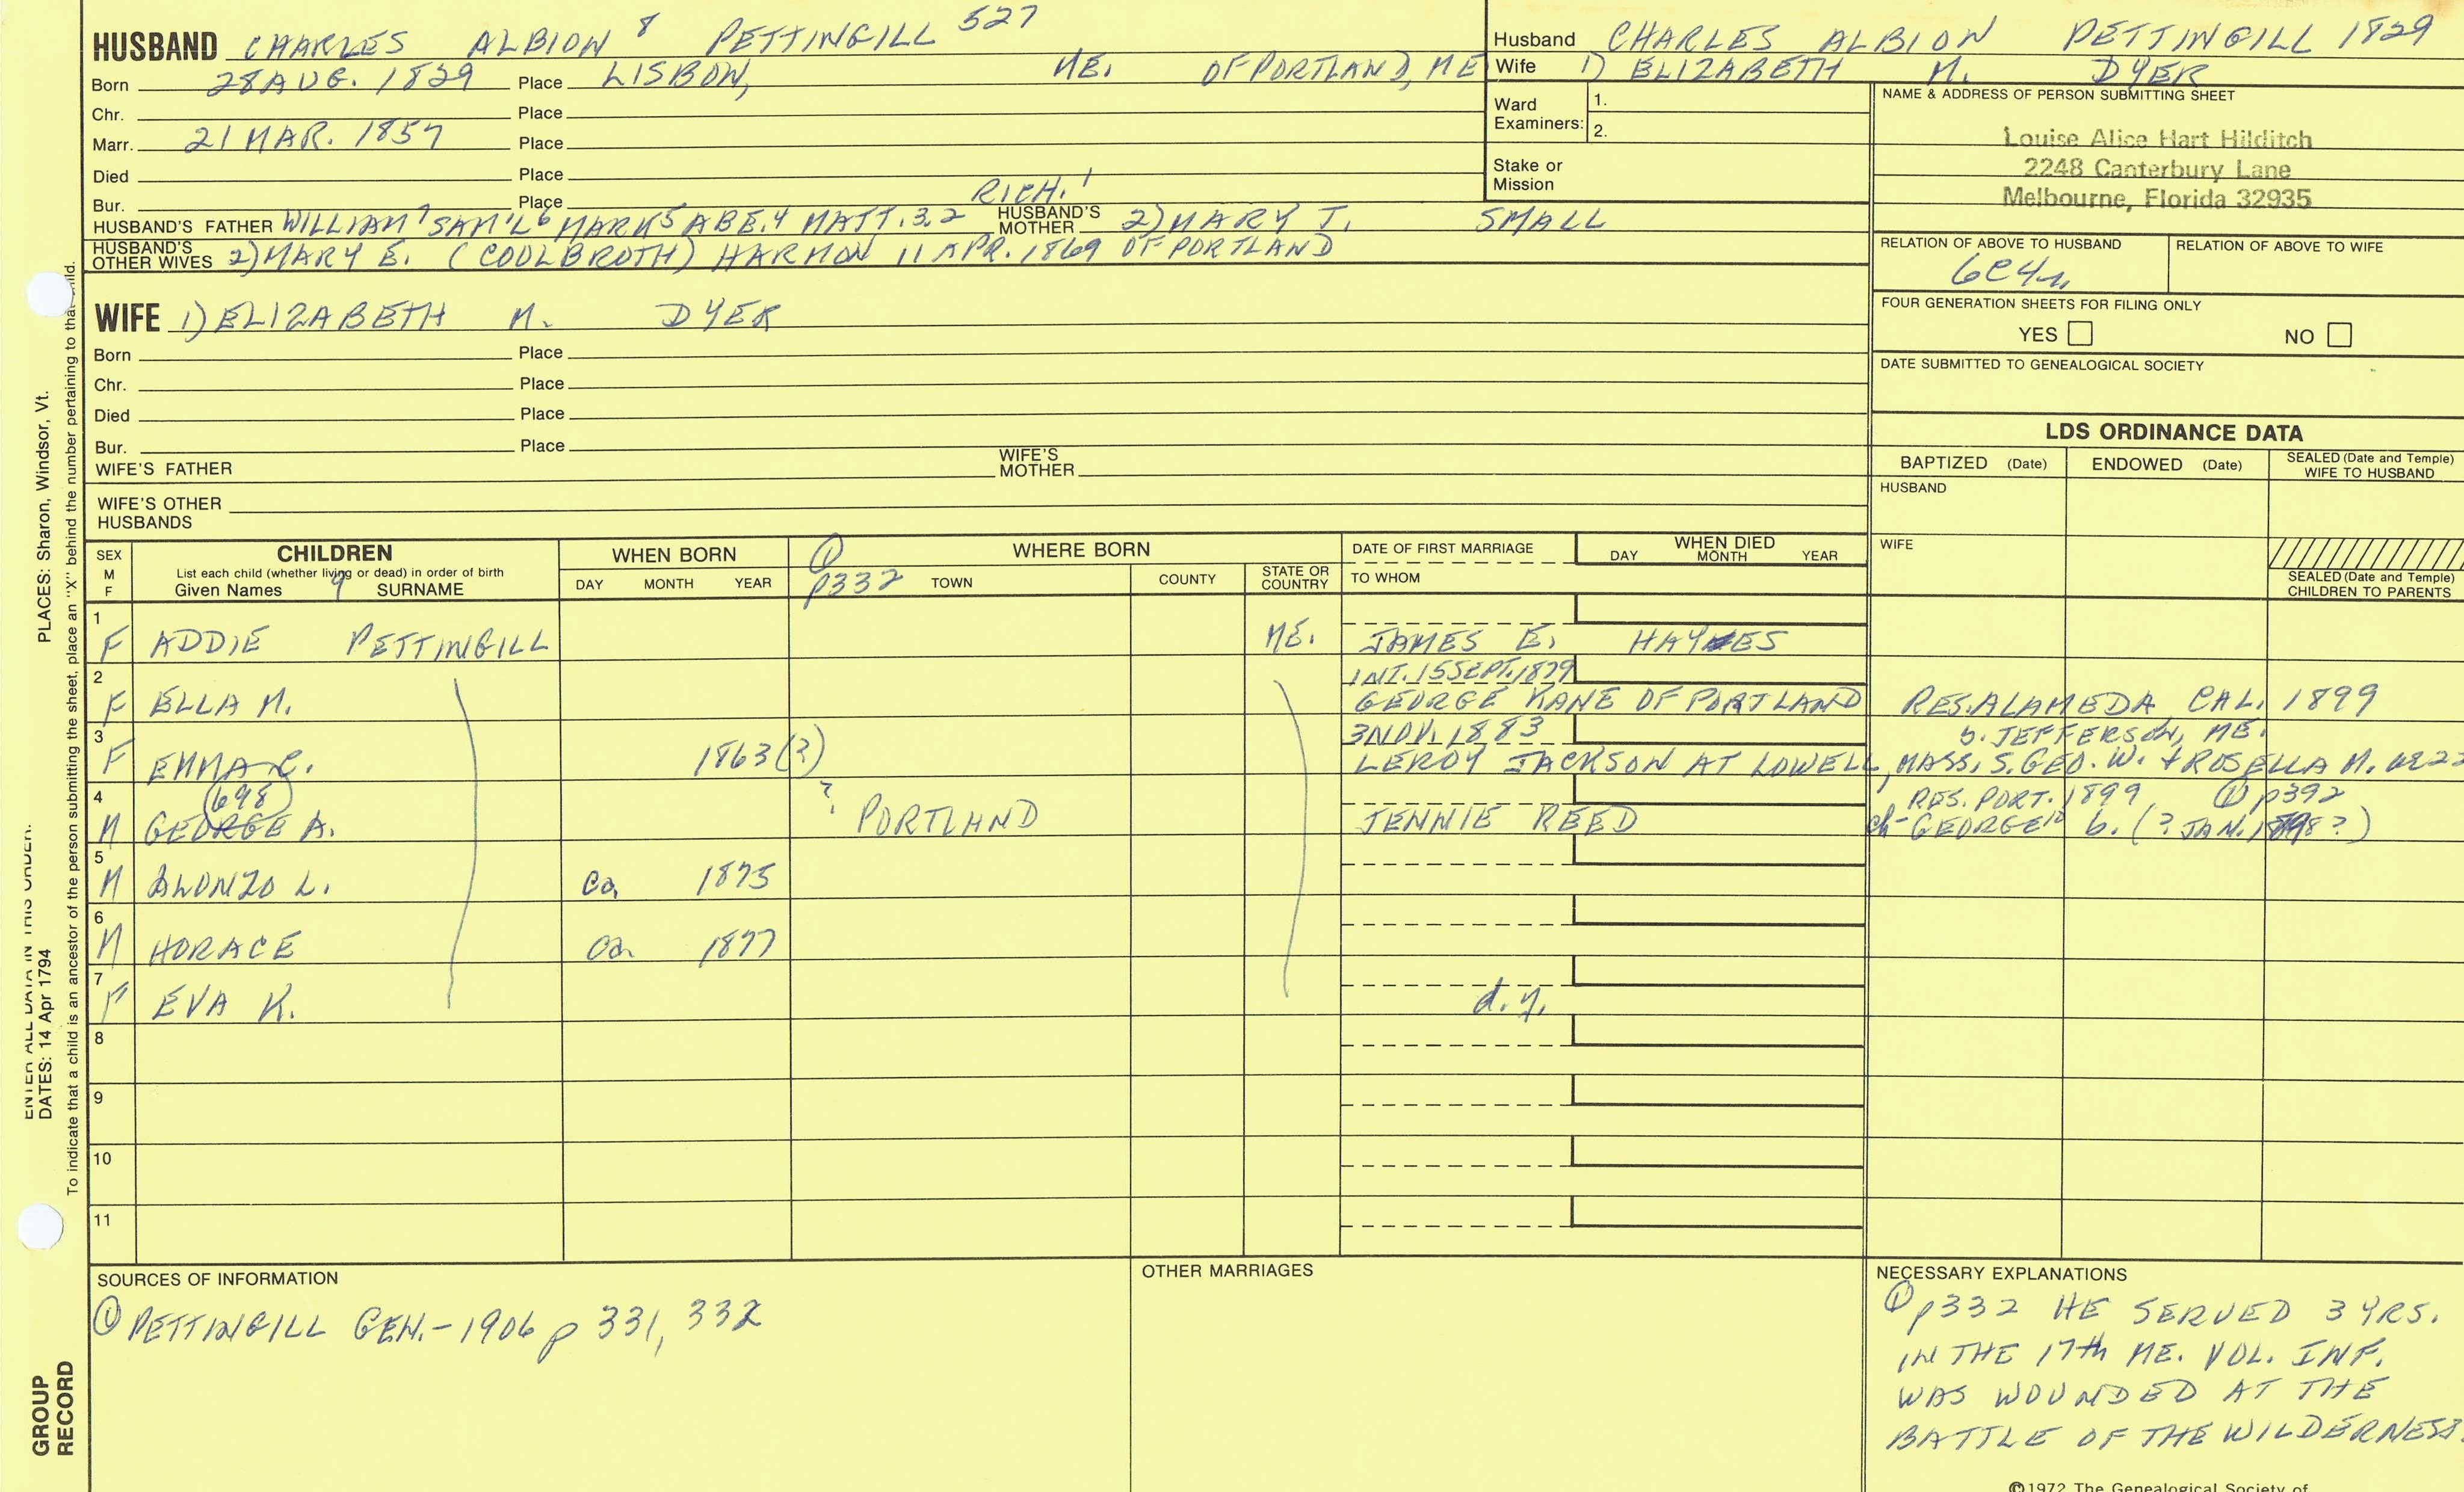 HUSBAND CHARLES ALBION 8 PETTINGILL 527
Born 28 AUG. 1829 Place LISBON, ME. OF PORTLAND, ME
Chr. Place
Marr. 21 MAR. 1857 Place
Died Place
Bur. Place
HUSBAND'S FATHER WILLIAM 7 SAM'L 6 MARK 5 ABE. 4 MATT. 3,2 RICH. 1 HUSBAND'S MOTHER 2) MARY J. SMALL
HUSBAND'S OTHER WIVES 2) MARY E. (COOLBROTH) HARMON 11 APR. 1869 OF PORTLAND
Husband CHARLES ALBION PETTINGILL 1829
Wife 1) ELIZABETH M. DYER
Ward Examiners: 1.
2.
Stake or Mission
NAME & ADDRESS OF PERSON SUBMITTING SHEET
Louise Alice Hart Hilditch
2248 Canterbury Lane
Melbourne, Florida 32935
RELATION OF ABOVE TO HUSBAND RELATION OF ABOVE TO WIFE
6C4r
FOUR GENERATION SHEETS FOR FILING ONLY
YES NO
DATE SUBMITTED TO GENEALOGICAL SOCIETY
WIFE 1) ELIZABETH M. DYER
Born Place
Chr. Place
Died Place
Bur. Place
WIFE'S FATHER WIFE'S MOTHER
WIFE'S OTHER HUSBANDS
LDS ORDINANCE DATA
BAPTIZED (Date) ENDOWED (Date) SEALED (Date and Temple) WIFE TO HUSBAND
HUSBAND
WIFE
SEALED (Date and Temple) CHILDREN TO PARENTS
SEX M F
CHILDREN
List each child (whether living or dead) in order of birth
Given Names 9 SURNAME
WHEN BORN
DAY MONTH YEAR
① p332
WHERE BORN
TOWN COUNTY STATE OR COUNTRY
DATE OF FIRST MARRIAGE
TO WHOM
WHEN DIED
DAY MONTH YEAR
1 F ADDIE PETTINGILL ME. JAMES E. HAYES
2 INT. 15 SEPT. 1879
F ELLA M. GEORGE KANE OF PORTLAND RES. ALAMEDA CAL. 1899
3 3 NOV. 1883 b. JEFFERSON, ME.
F EMMA C. 1863(?) LEROY JACKSON AT LOWELL, MASS, S. GEO. W. + ROSELLA M.
4 698 ? RES. PORT. 1899 ① p392
M GEORGE A. PORTLAND JENNIE REED ch- GEORGE 10 b. (? JAN. 1898?)
5 M ALONZO L. ca 1875
6 M HORACE ca 1877
7 F EVA K. d.y.
8
9
10
11
SOURCES OF INFORMATION
① PETTINGILL GEN.-1906 p 331, 332
OTHER MARRIAGES
NECESSARY EXPLANATIONS
① p332 HE SERVED 3 YRS.
IN THE 17th ME. VOL. INF.
WAS WOUNDED AT THE
BATTLE OF THE WILDERNESS.
©1972 The Genealogical Society of
GROUP RECORD
ENTER ALL DATA IN THIS ORDER:
DATES: 14 Apr 1794
PLACES: Sharon, Windsor, Vt.
To indicate that a child is an ancestor of the person submitting the sheet, place an "X" behind the number pertaining to that child.